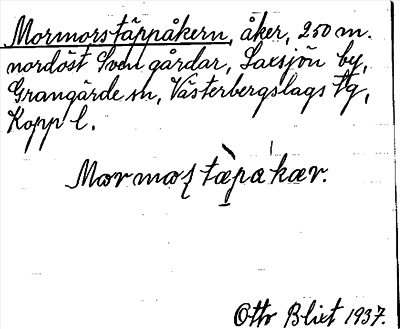 Mormorstäppåkern, åker, 250 m.
nordöst Sven gårdar, Laxsjön by,
Grangärde sn, Västerbergslags tg,
Kopp l.
Mormos̨ tæ̀pa kær.
Otto Blixt 1937.